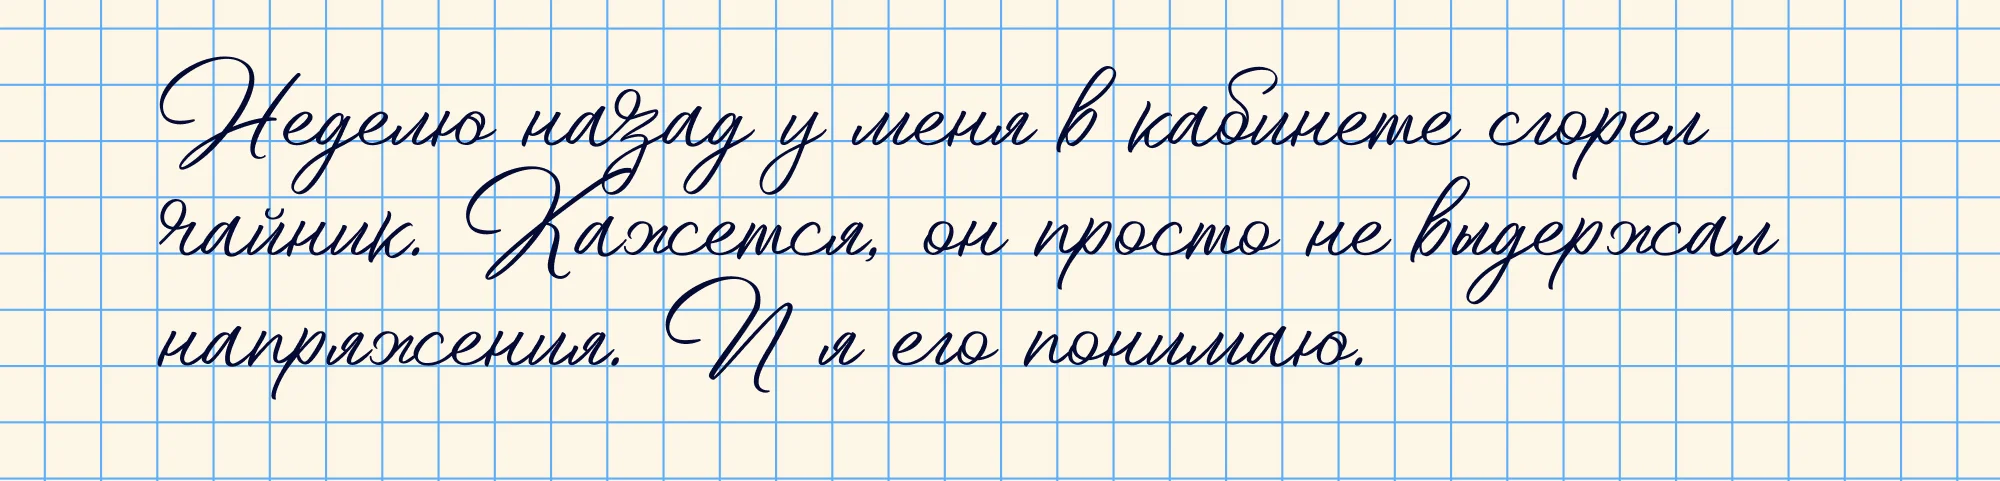 Неделю назад у меня в кабинете сгорел
чайник. Кажется, он просто не выдержал
напряжения. И я его понимаю.